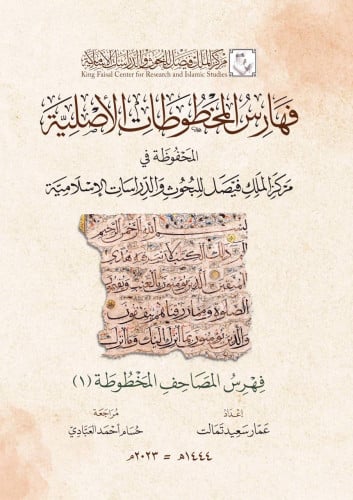 مركز الملك فيصل للبحوث والدراسات الإسلامية
King Faisal Center for Research and Islamic Studies
فهارس المخطوطات الأصلية
المحفوظة في
مركز الملك فيصل للبحوث والدراسات الإسلامية
بسم الله الرحمن الرحيم
الم ذلك الكتب لا ريب فيه هدى
للمتقين الذين يومنون بالغيب ويقيمون
الصلوة ومما رزقناهم ينفقون
والذين يومنون بما أنزل إليك وما أنزل
فِهْرِسُ المَصَاحِفِ المَخْطُوطَةِ (١)
إعداد
عمّار سعيد تمالت
مراجعة
حسام أحمد العبّادي
١٤٤٤هـ = ٢٠٢٣م